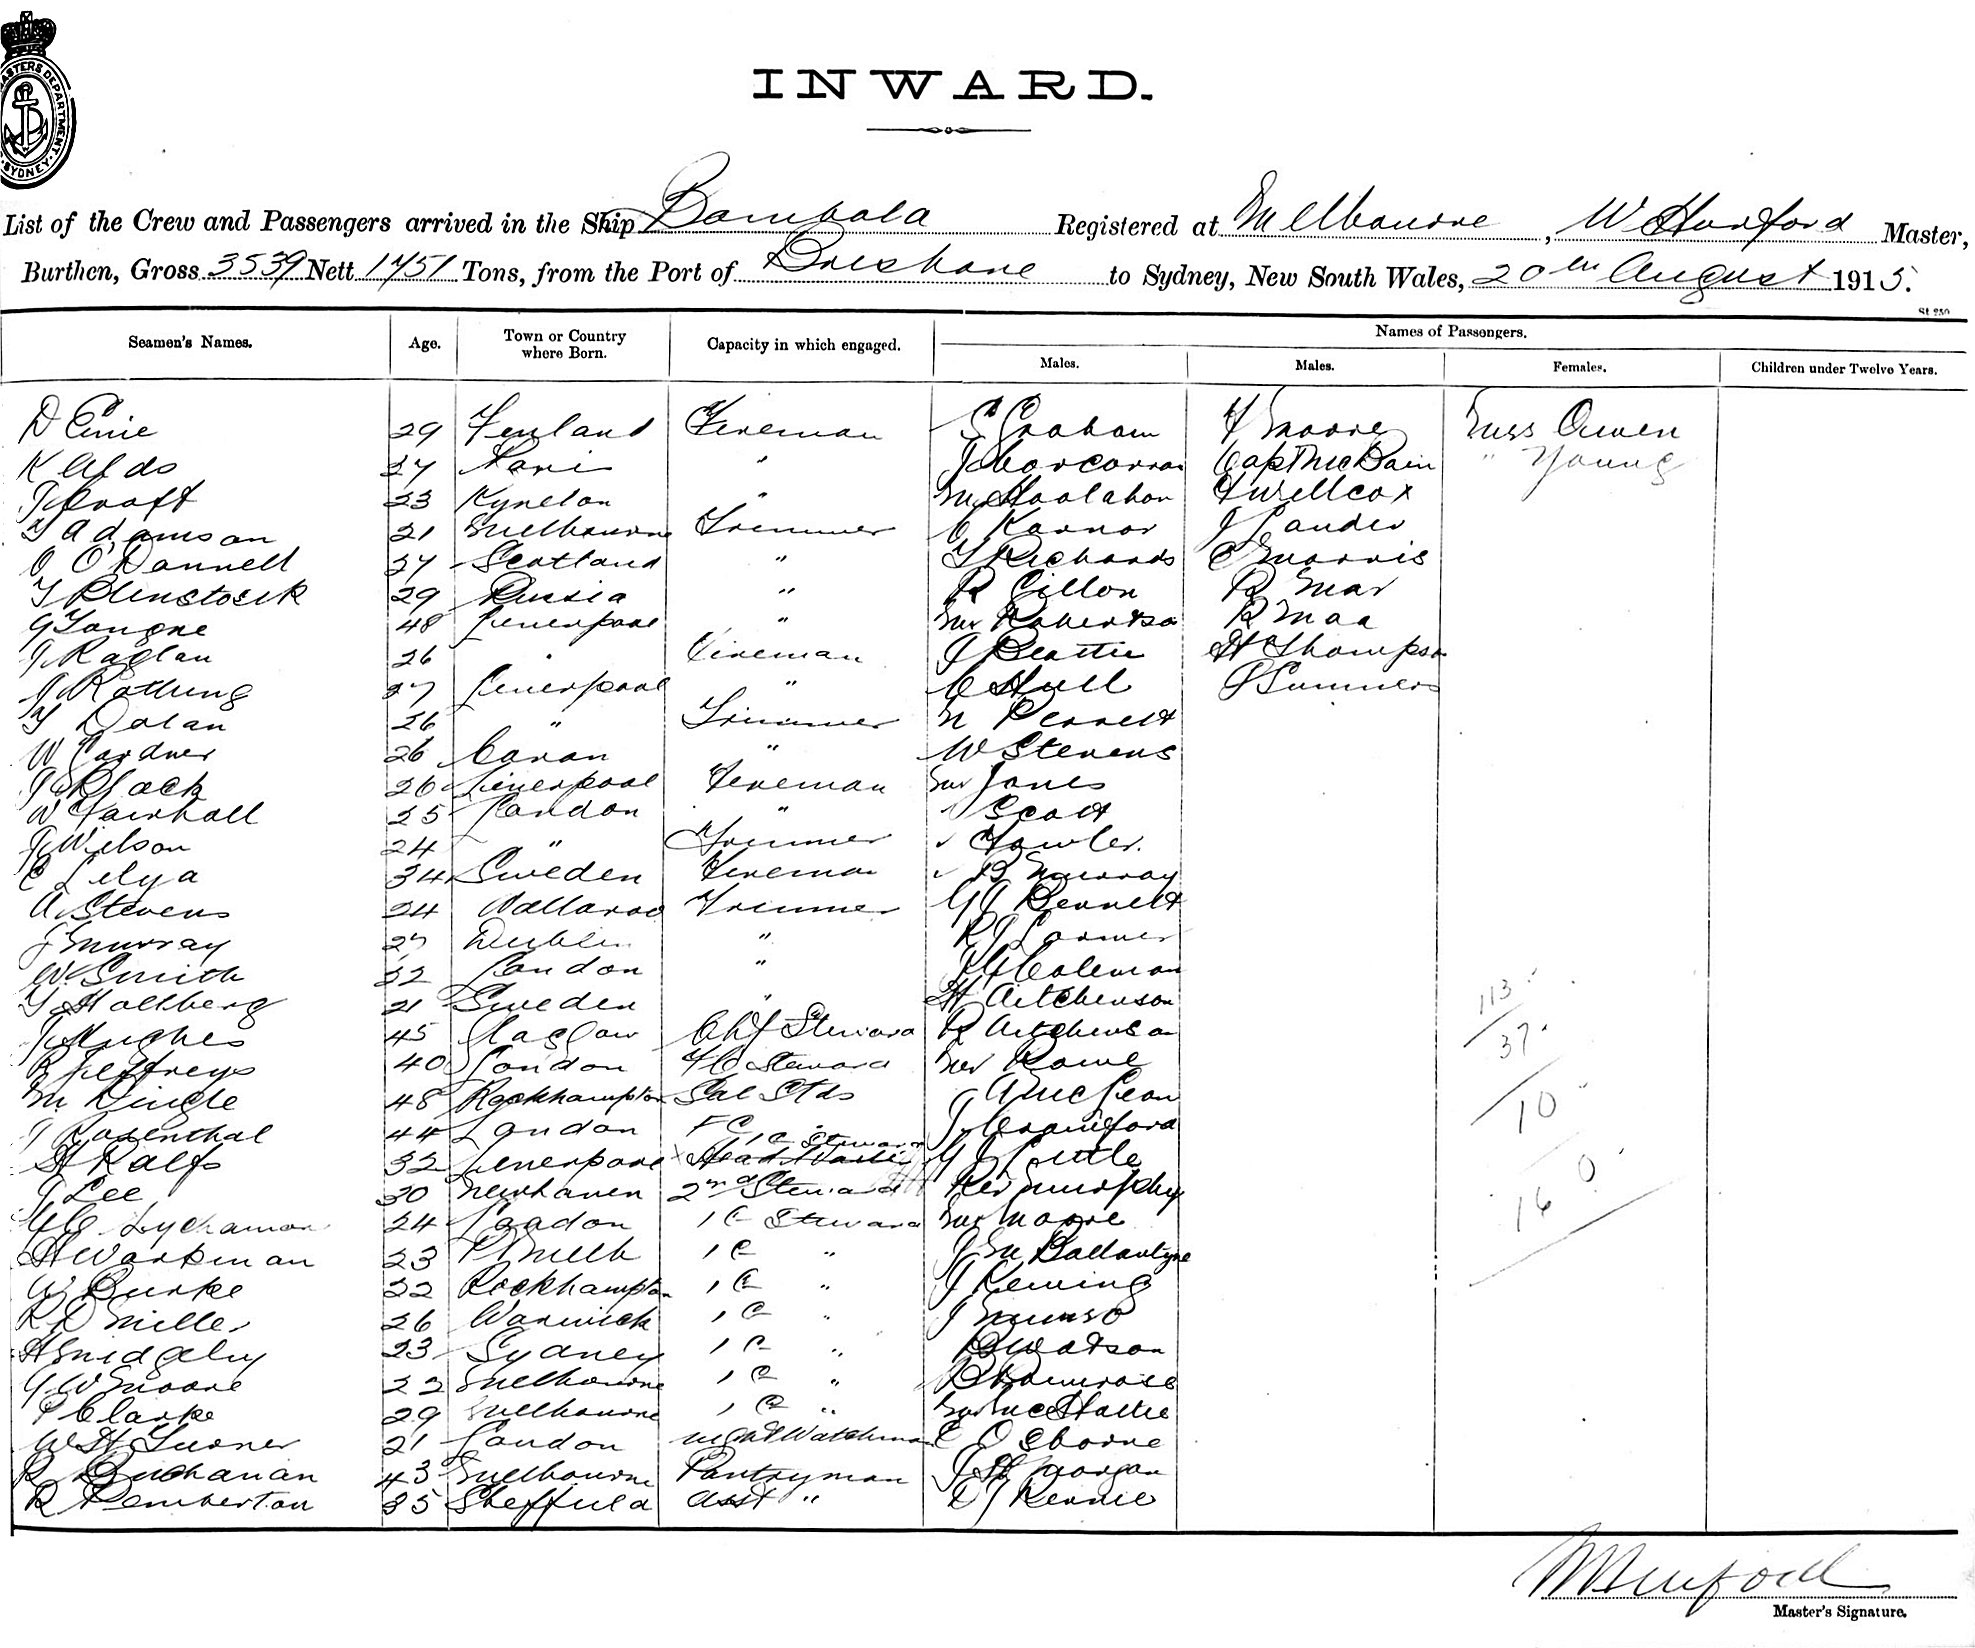 MASTERS DEPARTMENT
SYDNEY
INWARD.
List of the Crew and Passengers arrived in the Ship Bombala Registered at Melbourne, W Hurford Master,
Burthen, Gross 3539 Nett 1751 Tons, from the Port of Brisbane to Sydney, New South Wales, 20th August 1915.
St 250
Seamen's Names. Age. Town or Country where Born. Capacity in which engaged. Names of Passengers.
Males. Males. Females. Children under Twelve Years.
D 29 Finland Fireman S Graham F Moore Miss Owen
K 27 " J Corcoran Capt McBain " Young
J Croft 23 Kyneton " M Hoolahan F Willcox
T Adamson 21 Melbourne Trimmer J Lauder
J O'Donnell 27 Scotland " T Richards C Morris
T 29 Russia " R Gillon R Mar
G Tongue 48 Liverpool " Mr Robertso R Maa
J Raglan 26 " Fireman J Beattie H Thompson
J 27 Liverpool " C Hull P Summers
T Dolan 26 " Trimmer W Perrett
W Gardner 26 " W Stevens
J Black 26 Liverpool Fireman Mr Jones
W Fairhall 25 London " " Scott
J Wilson 24 " Trimmer " Fowler.
C Lilya 34 Sweden Fireman " B Murray
A Stevens 24 Wallaroo Trimmer G J Bennett
J Murray 27 Dublin " R J
W Smith 32 London " Coleman
T Hallberg 21 Sweden " H Aitchenson
J Hughes 45 Glasgow Chf Steward R Aitchenson
R Jeffreys 40 London FC Steward Mr Rowe
M Dingle 48 Rockhampton Sal Stds A McLean
J Rosenthal 44 London FC J Craniford
H Ralfs 32 Liverpool 1 C Steward G J Cuttle
J Lee 30 Newhaven 2nd Steward Rev Murphy
24 London 1 C Steward Mr Moore
H Workman 23 P Melb 1 C " J M Ballantyne
W Burke 22 Rockhampton 1 C " J Fleming
R D Miller 26 Warwick 1 C " J Munro
H Midgeley 23 Sydney 1 C " B Watson
G W Moore 22 Melbourne 1 C " Primrose
P Clarke 29 Melbourne 1 C " Mr McHattie
W H Turner 21 London Night Watchman C Osborne
R Buchanan 43 Melbourne Pantryman J H Morgan
R Pemberton 35 Sheffield Asst " D J Rennie
113
37
10
0
16
W Hurford
Master's Signature.